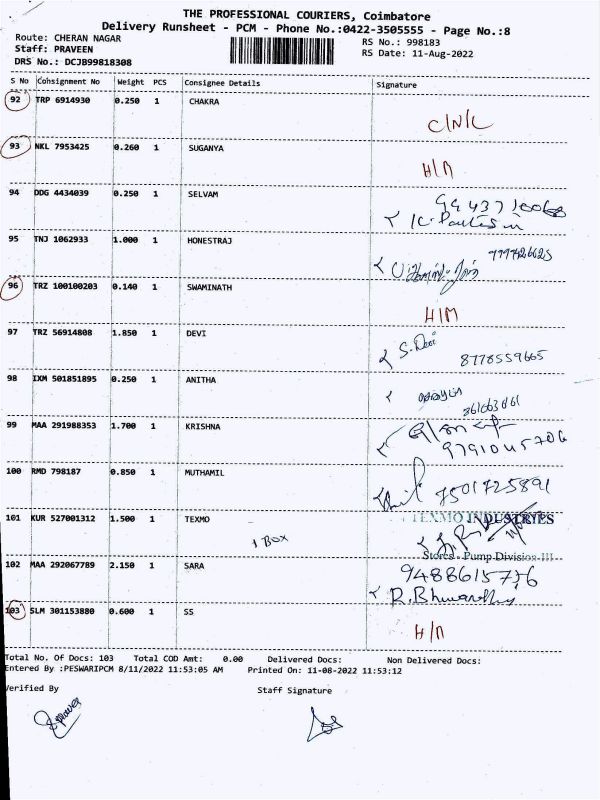 THE PROFESSIONAL COURIERS, Coimbatore
Delivery Runsheet - PCM - Phone No.:0422-3505555 - Page No.:8
Route: CHERAN NAGAR RS No.: 998183
Staff: PRAVEEN RS Date: 11-Aug-2022
DRS No.: DCJB99818308
S No Consignment No Weight PCS Consignee Details Signature
92 TRP 6914930 0.250 1 CHAKRA
C/N/L
93 NKL 7953425 0.260 1 SUGANYA
H/N
94 DDG 4434039 0.250 1 SELVAM
95 TNJ 1062933 1.000 1 HONESTRAJ
96 TRZ 100100203 0.140 1 SWAMINATH
H/M
97 TRZ 56914808 1.850 1 DEVI
S. Devi
8778559665
98 IXM 501851895 0.250 1 ANITHA
99 MAA 291988353 1.700 1 KRISHNA
9791045706
100 RMD 798187 0.850 1 MUTHAMIL
7501725891
101 KUR 527001312 1.500 1 TEXMO TEXMO INDUSTRIES
1 BOX
Stores - Pump Division III
102 MAA 292067789 2.150 1 SARA
103 SLM 301153880 0.600 1 SS
H/N
Total No. Of Docs: 103 Total COD Amt: 0.00 Delivered Docs: Non Delivered Docs:
Entered By :PESWARIPCM 8/11/2022 11:53:05 AM Printed On: 11-08-2022 11:53:12
Verified By Staff Signature